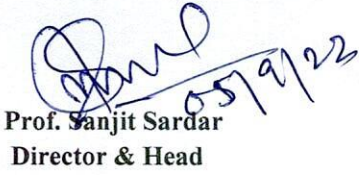 05/9/22
Prof. Sanjit Sardar
Director & Head